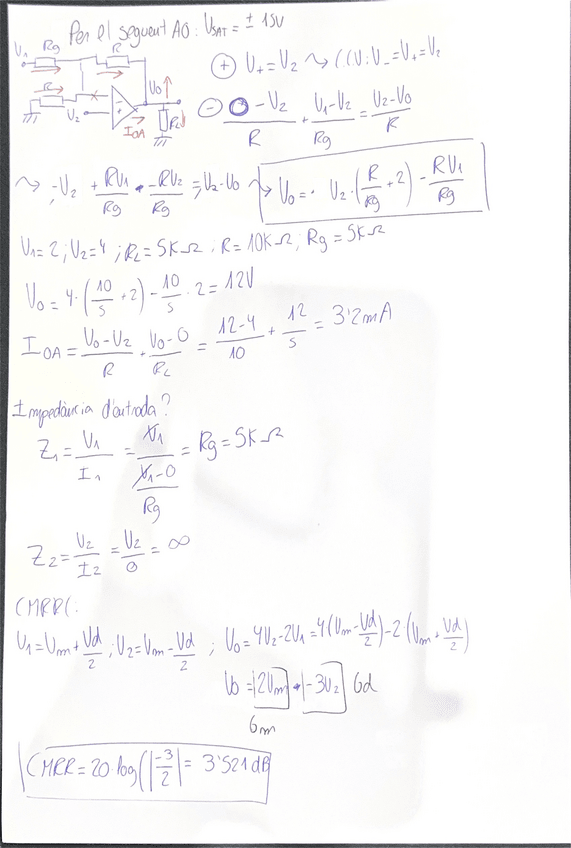 Per el seguent AO: U_SAT = ± 15V
V₁ Rg R
R V₂ U₀ I_OA RL
⊕ U₊ = U₂ ⇝ C.C.V: U₋ = U₊ = U₂
⊖ (0 - U₂)/R + (U₁ - U₂)/Rg = (U₂ - U₀)/R
⇝ -U₂ + RU₁/Rg - RU₂/Rg = U₂ - U₀ ⇝ U₀ = U₂·(R/Rg + 2) - RU₁/Rg
U₁ = 2; U₂ = 4; RL = 5KΩ; R = 10KΩ; Rg = 5KΩ
U₀ = 4·(10/5 + 2) - 10/5 · 2 = 12V
I_OA = (U₀ - U₂)/R + (U₀ - 0)/RL = (12 - 4)/10 + 12/5 = 3'2mA
Impedància d'entrada?
Z₁ = U₁/I₁ = U₁/((U₁ - 0)/Rg) = Rg = 5KΩ
Z₂ = U₂/I₂ = U₂/0 = ∞
CMRR:
U₁ = Um + Ud/2; U₂ = Um - Ud/2; U₀ = 4U₂ - 2U₁ = 4(Um - Ud/2) - 2·(Um + Ud/2)
U₀ = |2Um| + |-3U₂| Gd
Gm
CMRR = 20·log(|-3/2| = 3'521 dB